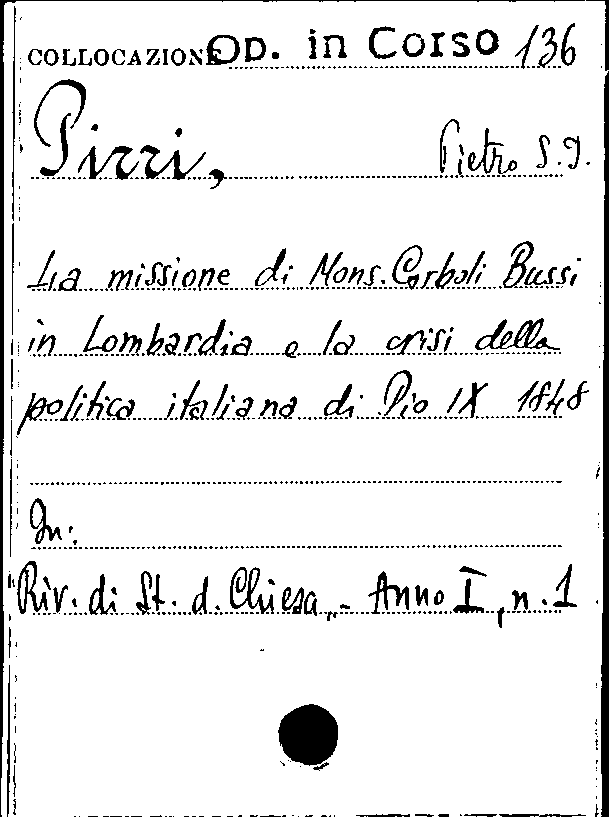 COLLOCAZIONE Op. in Corso 136
Pirri, Pietro S.J.
La missione di Mons. Corboli Bussi
in Lombardia e la crisi della
politica italiana di Pio IX 1848
In:
"Riv. di St. d. Chiesa" - Anno I, n. 1